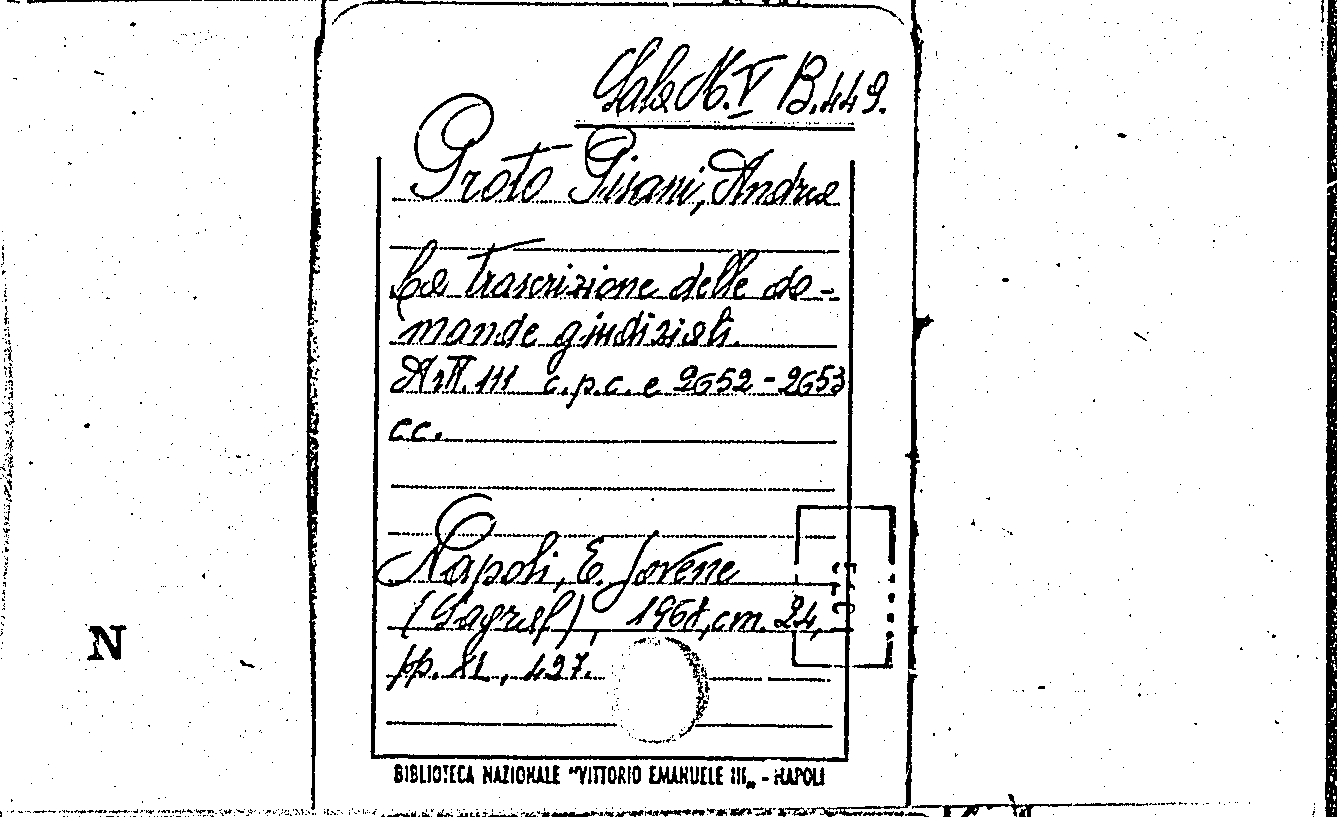 Sala N. V B.449.
Proto Pisani, Andrea
La trascrizione delle do-
mande giudiziali.
Artt. 111 c.p.c. e 2652-2653
cc.
Napoli, E. Jovene
(Sagraf), 1968, cm. 24,
pp. XL, 427.
N
BIBLIOTECA NAZIONALE "VITTORIO EMANUELE III„ - NAPOLI